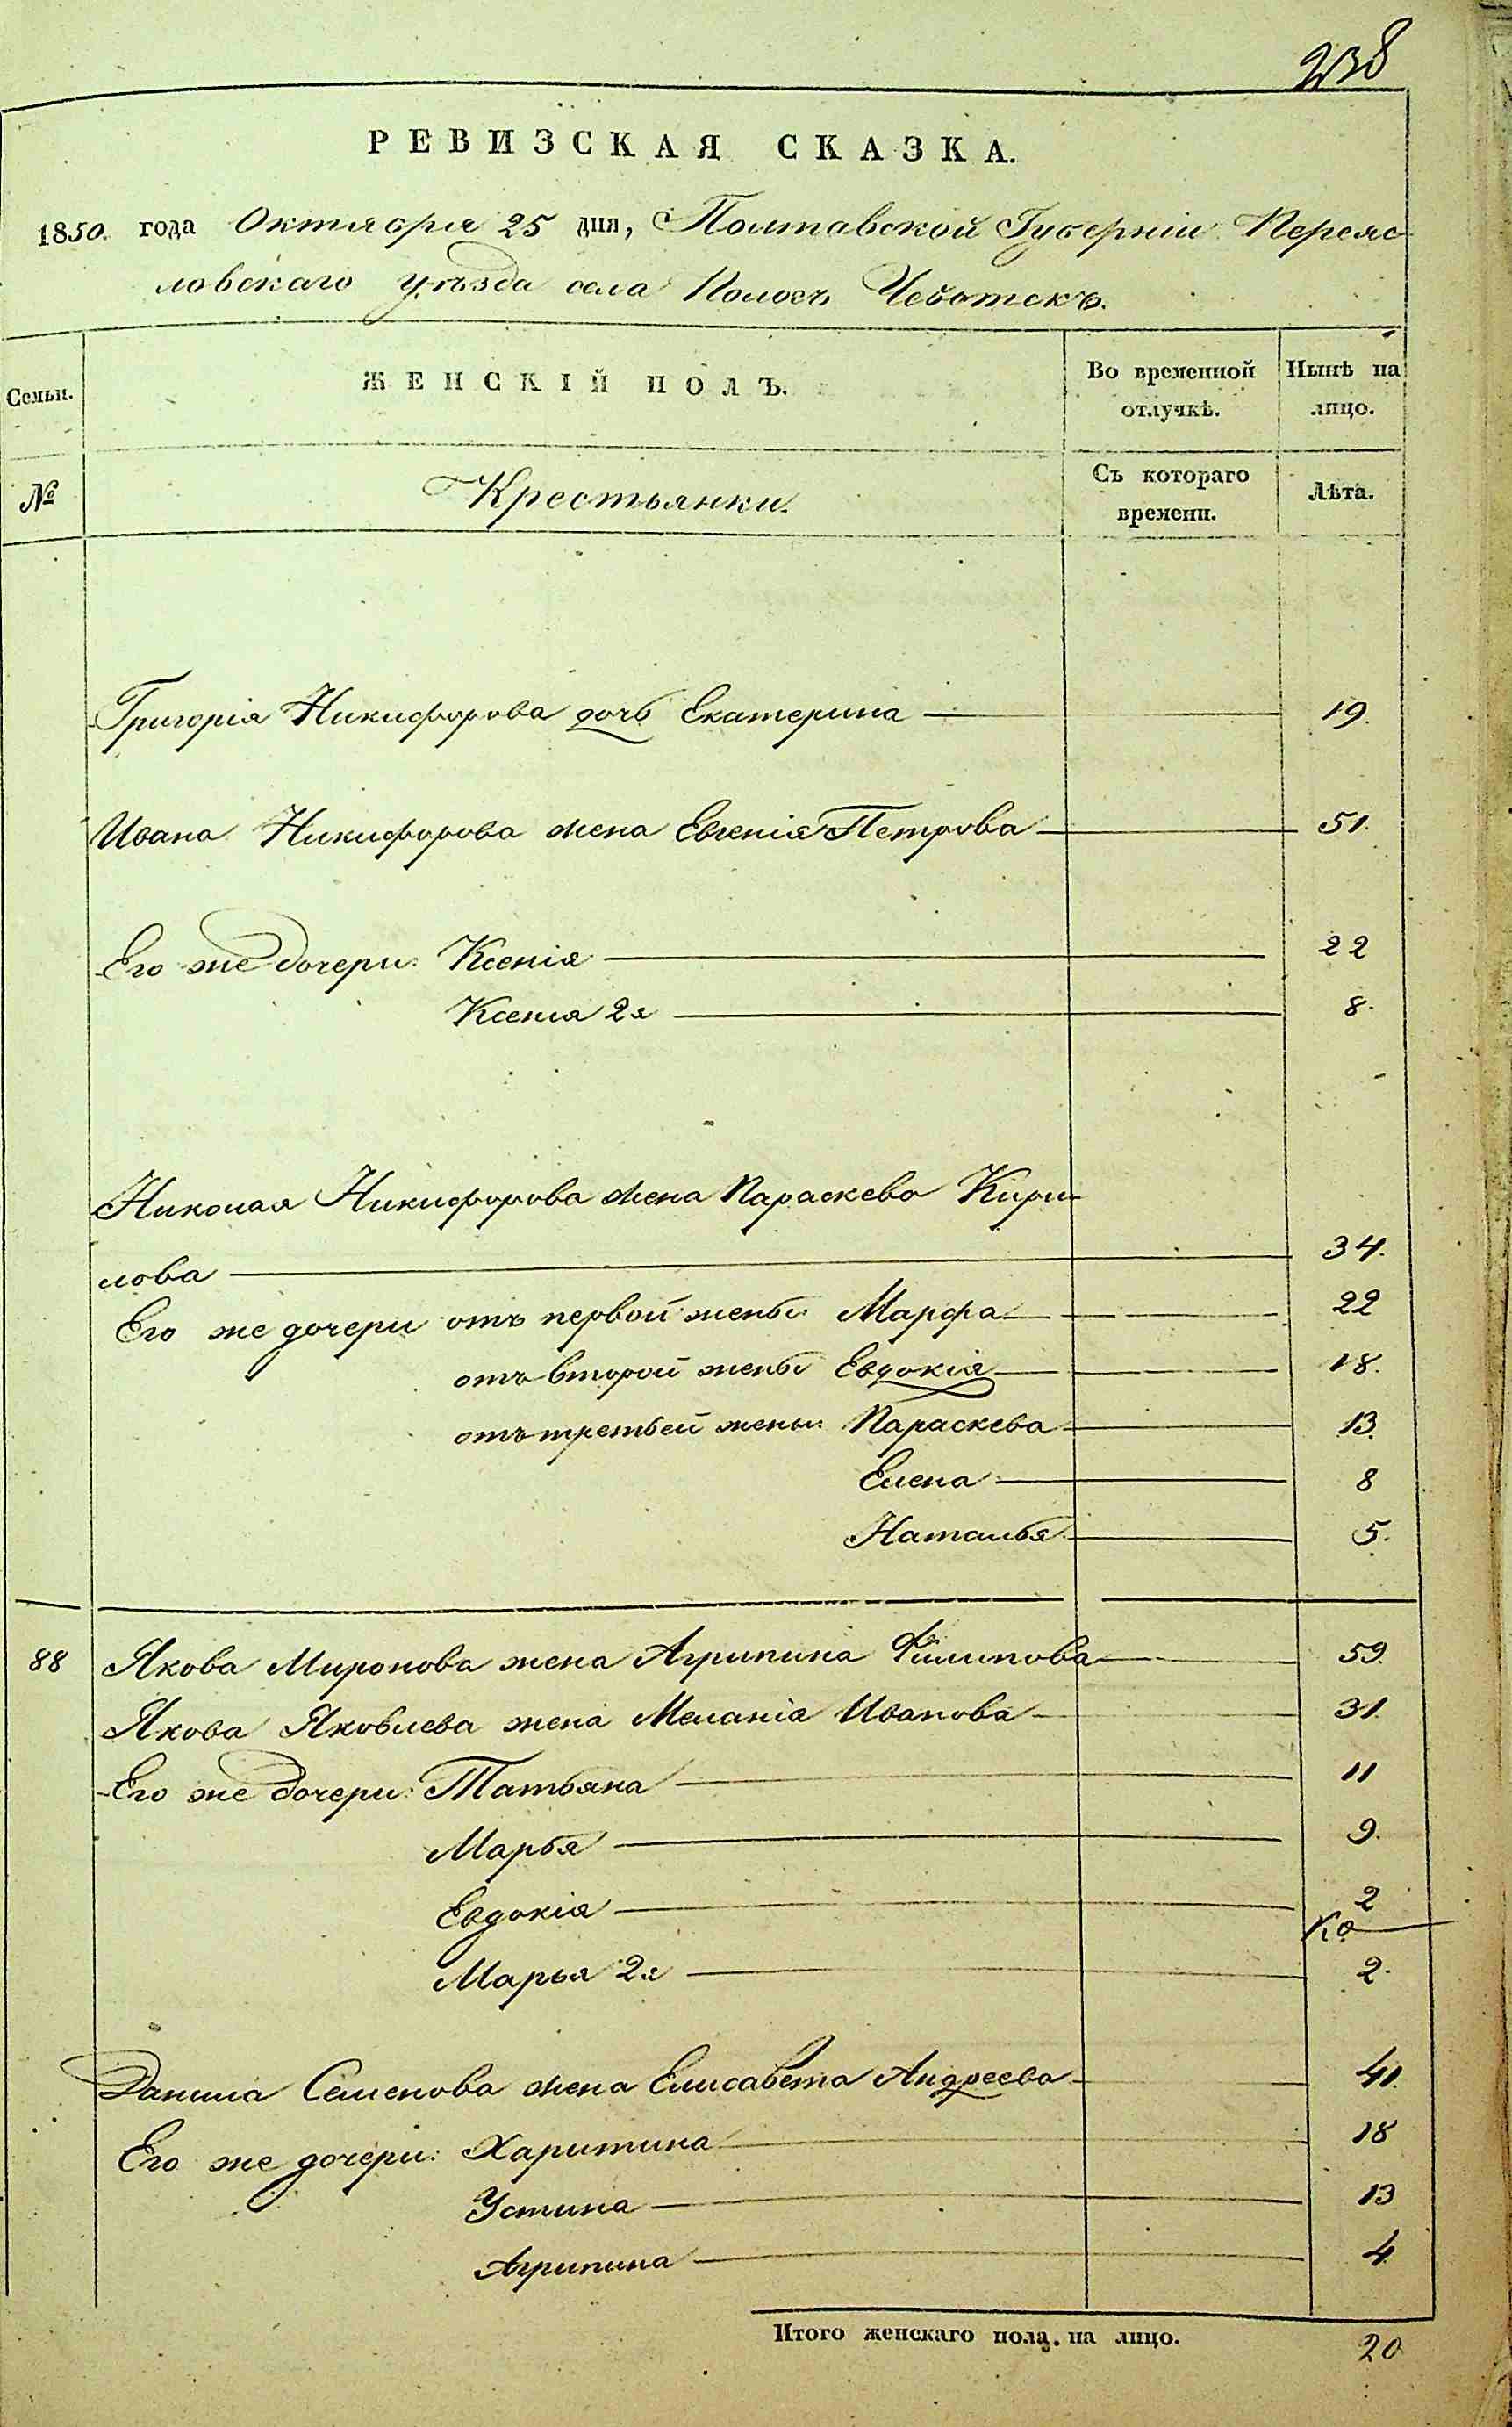 238
РЕВИЗСКАЯ СКАЗКА.
1850. года Октября 25 дня, Полтавской Губерніи Переяс
ловскаго уѣзда села
Семьи. ЖЕНСКІЙ ПОЛЪ. Во временной отлучкѣ. Нынѣ на лицо.
№ Крестьянки. Съ котораго времени. Лѣта.
Григорія Никифорова дочь Екатерина 19.
Ивана Никифорова жена Евгенія Петрова 51.
Его же дочери: Ксенія 22
Ксенія 2я 8.
Николая Никифорова жена Параскева Кири-
лова 34.
Его же дочери отъ первой жены: Марфа 22
отъ второй жены Евдокія 18.
отъ третьей жены: Параскева 13.
Елена 8
Наталья 5.
88 Якова Миронова жена Агрипина Филипова 59.
Якова Яковлева жена Меланія Иванова 31.
Его же дочери: Татьяна 11
Марья 9.
Евдокія 2
Марья 2я 2.
Данила Семенова жена Елисавета Андреева 41.
Его же дочери: Харитина 18
Устина 13
Агрипина 4
Итого женскаго пола на лицо. 20